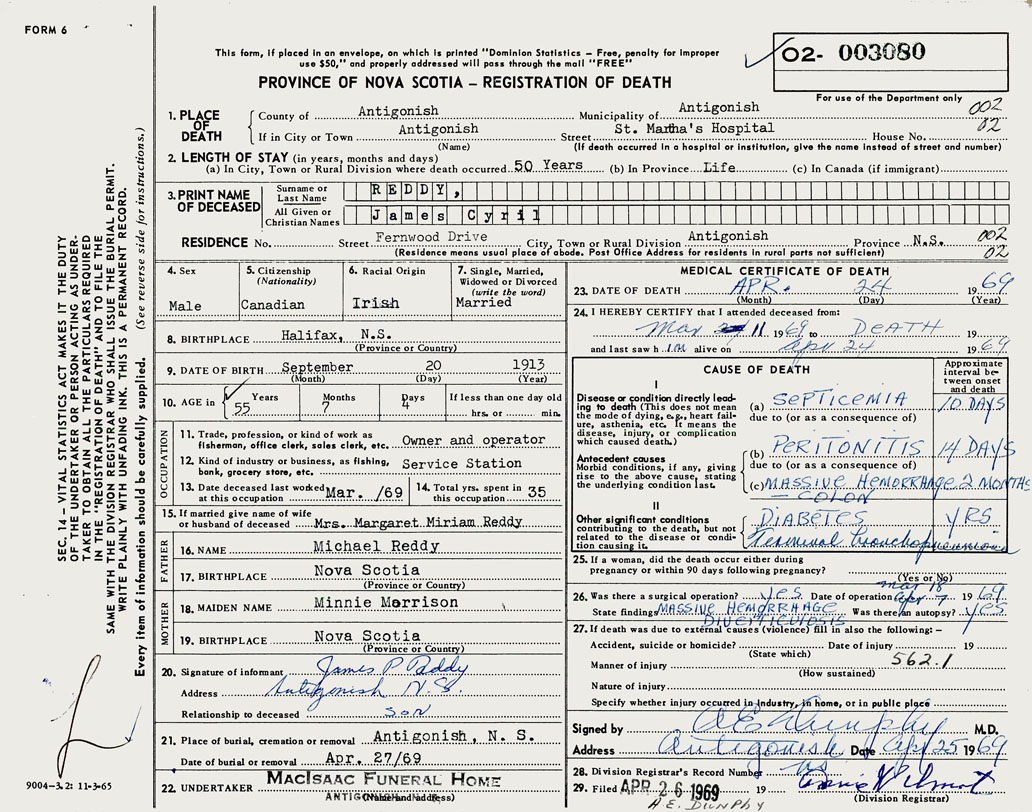 FORM 6
This form, if placed in an envelope, on which is printed "Dominion Statistics – Free, penalty for improper
use $50," and properly addressed will pass through the mail "FREE"
02- 003080
PROVINCE OF NOVA SCOTIA – REGISTRATION OF DEATH
For use of the Department only
1. PLACE OF DEATH
County of Antigonish Municipality of Antigonish 002
If in City or Town Antigonish Street St. Martha's Hospital House No. 02
(Name) (If death occurred in a hospital or institution, give the name instead of street and number)
2. LENGTH OF STAY (in years, months and days)
(a) In City, Town or Rural Division where death occurred 50 Years (b) In Province Life (c) In Canada (if immigrant)
3. PRINT NAME OF DECEASED
Surname or Last Name REDDY,
All Given or Christian Names James Cyril
RESIDENCE No. Street Fernwood Drive City, Town or Rural Division Antigonish Province N.S. 002
(Residence means usual place of abode. Post Office Address for residents in rural parts not sufficient) 02
4. Sex
Male
5. Citizenship
(Nationality)
Canadian
6. Racial Origin
Irish
7. Single, Married,
Widowed or Divorced
(write the word)
Married
8. BIRTHPLACE Halifax, N.S.
(Province or Country)
9. DATE OF BIRTH September 20 1913
(Month) (Day) (Year)
10. AGE in Years Months Days If less than one day old
55 7 4 hrs. or min.
OCCUPATION
11. Trade, profession, or kind of work as
fisherman, office clerk, sales clerk, etc. Owner and operator
12. Kind of industry or business, as fishing,
bank, grocery store, etc. Service Station
13. Date deceased last worked
at this occupation Mar. /69
14. Total yrs. spent in
this occupation 35
15. If married give name of wife
or husband of deceased Mrs. Margaret Miriam Reddy
FATHER
16. NAME Michael Reddy
17. BIRTHPLACE Nova Scotia
(Province or Country)
MOTHER
18. MAIDEN NAME Minnie Morrison
19. BIRTHPLACE Nova Scotia
(Province or Country)
20. Signature of informant James P Reddy
Address Antigonish N.S.
Relationship to deceased son
21. Place of burial, cremation or removal Antigonish, N. S.
Date of burial or removal Apr. 27/69
22. UNDERTAKER MacIsaac Funeral Home
ANTIGONISH
(Name and address)
MEDICAL CERTIFICATE OF DEATH
23. DATE OF DEATH APR. 24 1969
(Month) (Day) (Year)
24. I HEREBY CERTIFY that I attended deceased from:
Mar 11 1969 to DEATH 19
and last saw h im alive on Apr 24 1969
CAUSE OF DEATH
Approximate interval between onset and death
I
Disease or condition directly leading to death (This does not mean the mode of dying, e.g., heart failure, asthenia, etc. It means the disease, injury, or complication which caused death.)
(a) SEPTICEMIA 10 DAYS
due to (or as a consequence of)
Antecedent causes
Morbid conditions, if any, giving rise to the above cause, stating the underlying condition last.
(b) PERITONITIS 14 DAYS
due to (or as a consequence of)
(c) MASSIVE HEMORRHAGE 2 MONTHS
– COLON
II
Other significant conditions contributing to the death, but not related to the disease or condition causing it.
DIABETES YRS
Terminal bronchopneumonia
25. If a woman, did the death occur either during
pregnancy or within 90 days following pregnancy?
(Yes or No)
mar 18
26. Was there a surgical operation? yes Date of operation Apr 7 1969
State findings MASSIVE HEMORRHAGE Was there an autopsy? yes
DIVERTICULOSIS
27. If death was due to external causes (violence) fill in also the following: –
Accident, suicide or homicide? Date of injury 19
(State which)
Manner of injury 562.1
(How sustained)
Nature of injury
Specify whether injury occurred in industry, in home, or in public place
Signed by A E Dunphy M.D.
Address Antigonish NS Date Apr 25 1969
28. Division Registrar's Record Number
29. Filed APR 26 1969 19
(Division Registrar)
A.E. DUNPHY
SEC. 14 – VITAL STATISTICS ACT MAKES IT THE DUTY
OF THE UNDERTAKER OR PERSON ACTING AS UNDER-
TAKER TO OBTAIN ALL THE PARTICULARS REQUIRED
IN THE "REGISTRATION OF DEATH" AND TO FILE THE
SAME WITH THE DIVISION REGISTRAR WHO SHALL ISSUE THE BURIAL PERMIT.
WRITE PLAINLY WITH UNFADING INK. THIS IS A PERMANENT RECORD.
Every item of information should be carefully supplied. (See reverse side for instructions.)
9004-3.2: 11-3-65